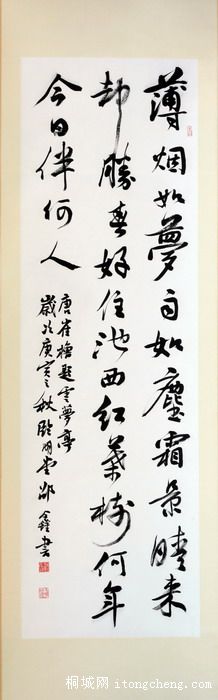 薄烟如梦雨如尘霜景晴来
却胜春好住池西红叶树何年
今日伴何人
唐崔橹题云梦亭
岁次庚寅之秋
鑫书
桐城网 itongcheng.com